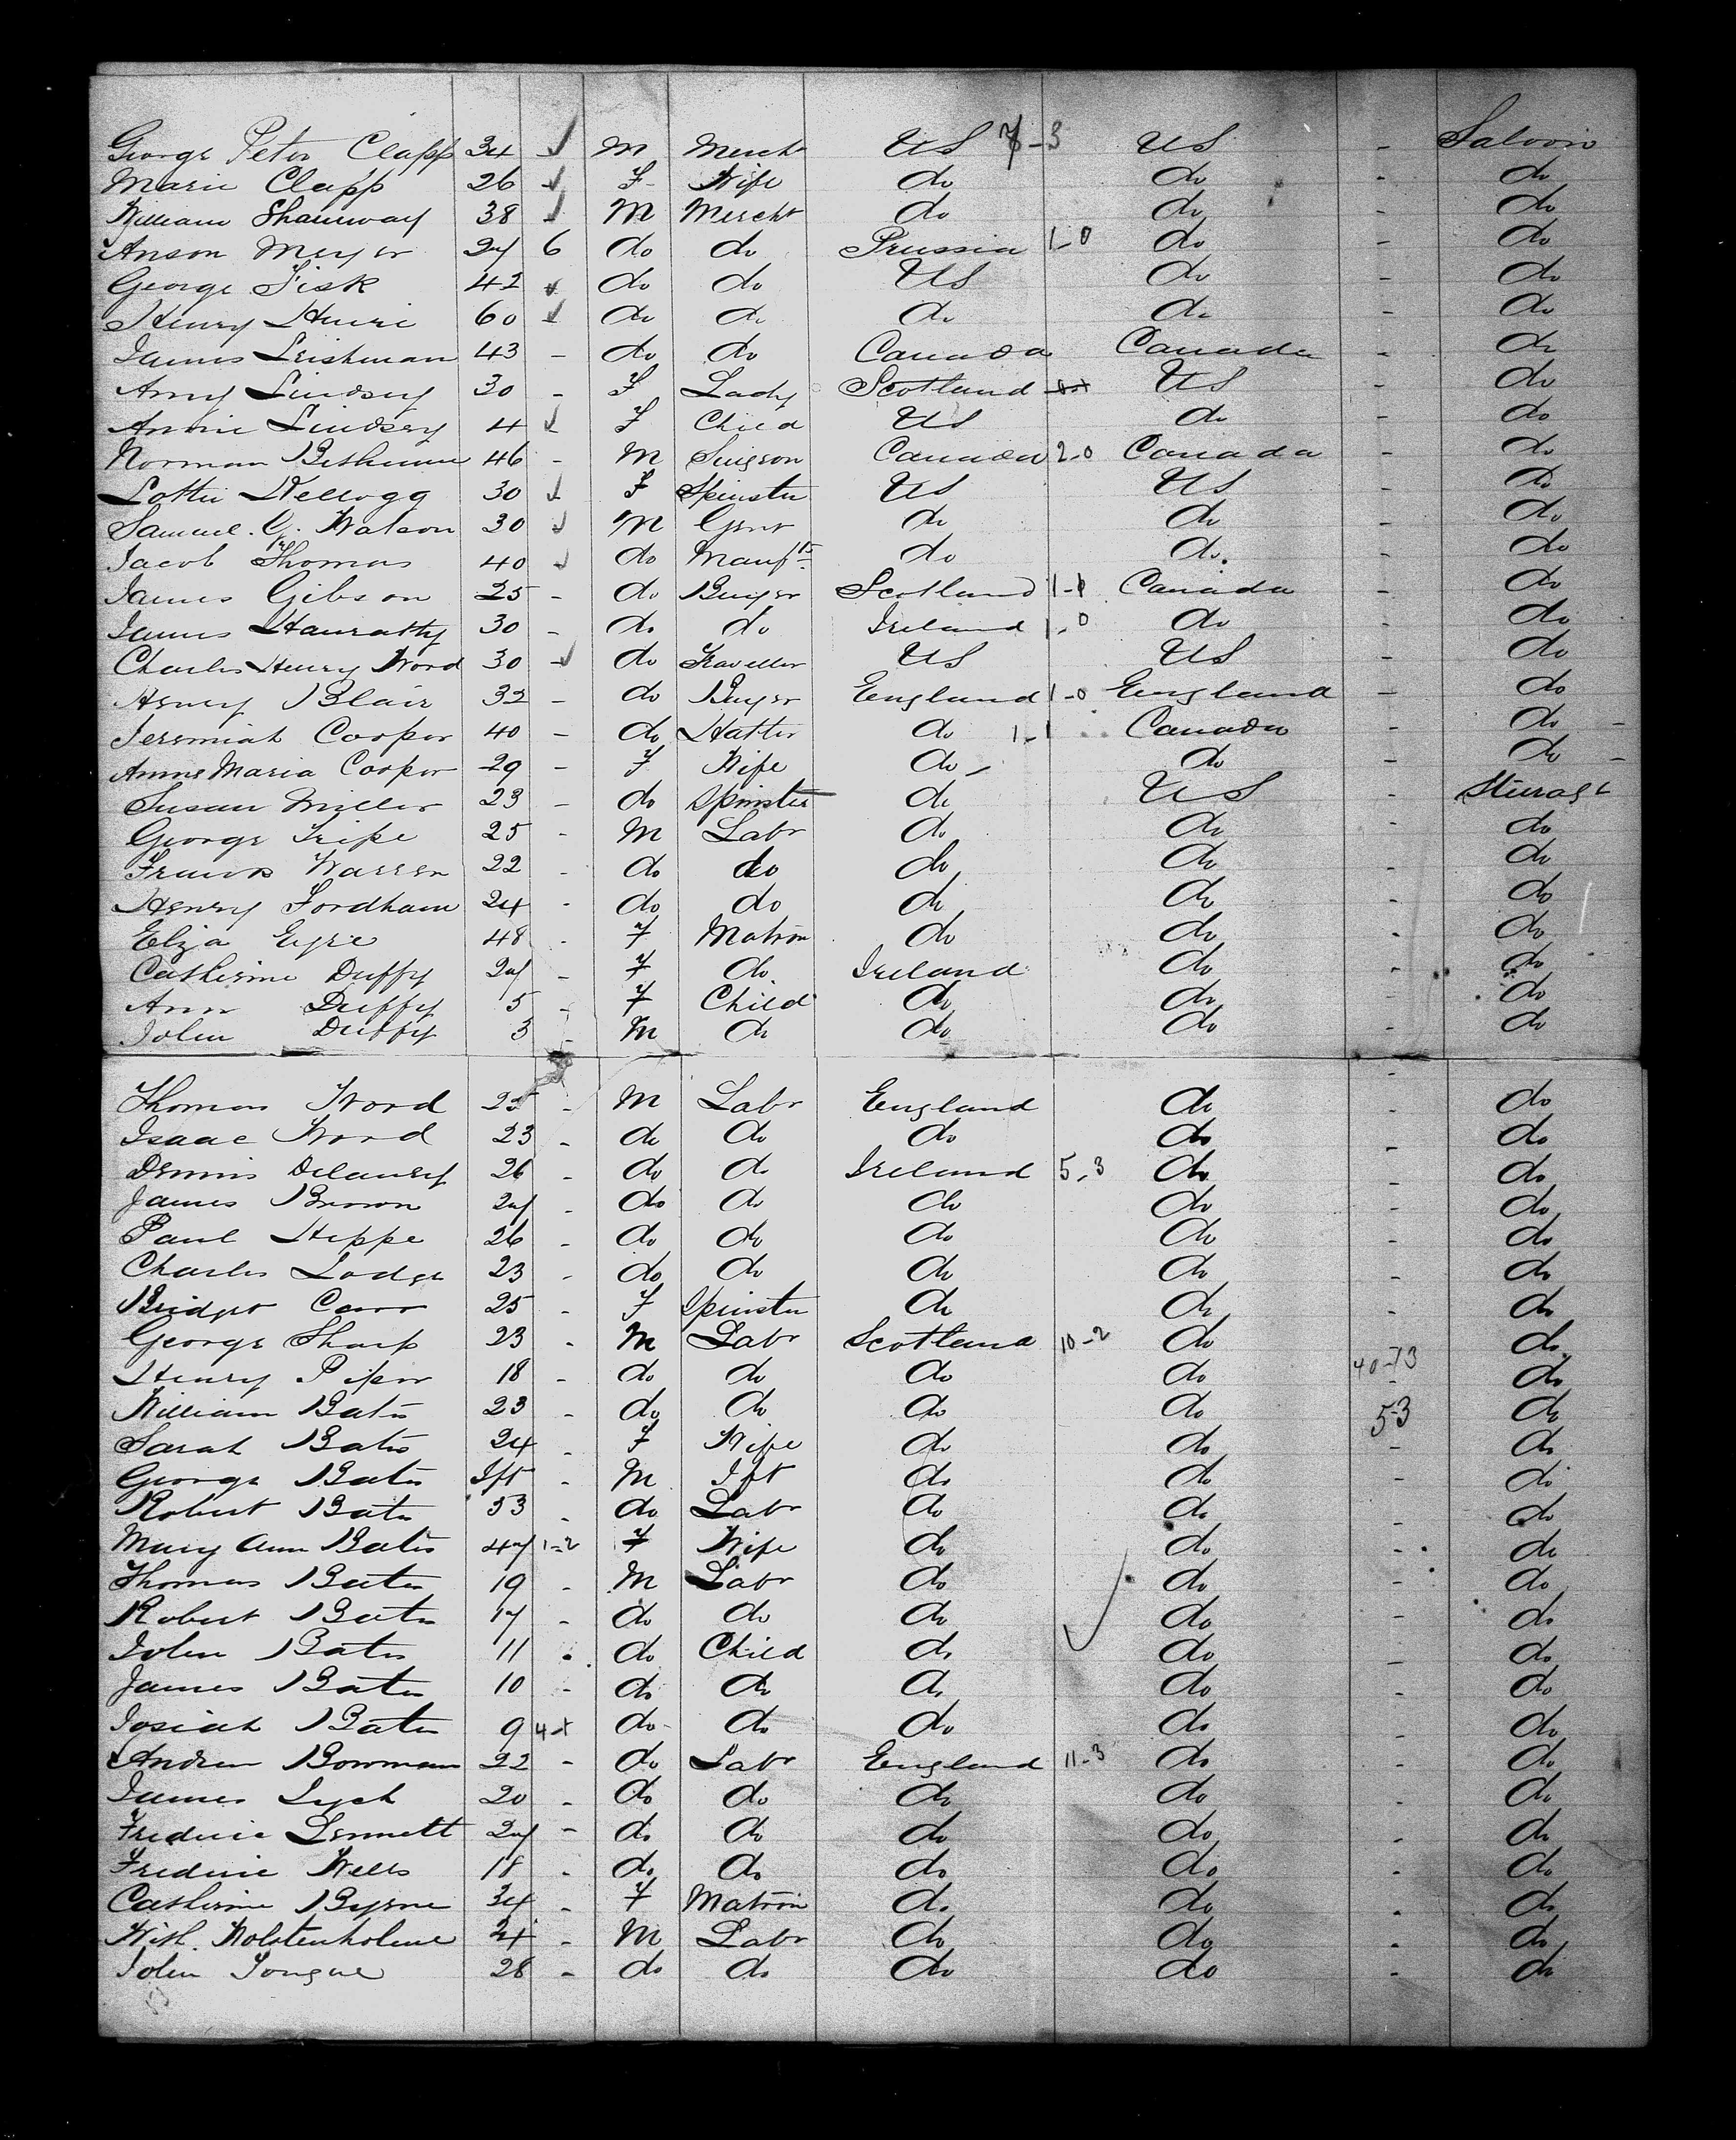 George Peter Clapp 34 ✓ M Mercht US 7-3 US - Saloon
Marie Clapp 26 ✓ F Wife do do - do
William Shumway 38 ✓ M Mercht do do - do
Anson Meyer 27 6 do do Prussia 1-0 do - do
George Fisk 42 ✓ do do US do - do
Henry 60 ✓ do do do do - do
James Leishman 43 - do do Canada Canada - do
Amy Lindsey 30 - F Lady Scotland US - do
Annie Lindsey 4 ✓ F Child US do - do
Norman Bethune 46 - M Surgeon Canada 2-0 Canada - do
Lottie Kellogg 30 ✓ F Spinster US US - do
Samuel. G. Watson 30 ✓ M Gent do do - do
Jacob Thomas 40 ✓ do Manufr do do. - do
James Gibson 25 - do Buyer Scotland 1-1 Canada - do
James Hanratty 30 - do do Ireland 1-0 do - do
Charles Henry Word 30 ✓ do Traveller US US - do
Henry Blair 32 - do Buyer England 1-0 England - do
Jeremiah Cooper 40 - do Hatter do 1-1 Canada - do -
Anne Maria Cooper 29 - F Wife do - do do -
Susan Miller 23 - do Spinster do US - Steerage
George Tripe 25 - M Labr do do - do
Francis Warren 22 - do do do do do
Henry Fordham 24 - do do do do - do
Eliza Eyre 48 - F Matron do do - do
Catherine Duffy 27 - F do Ireland do - do
Ann Duffy 5 - F Child do do - do
John Duffy 3 - M do do do - do
Thomas Word 25 - M Labr England do - do
Isaac Word 23 - do do do do - do
Dennis Delaney 26 - do do Ireland 5-3 do - do
James Brown 27 - do do do do - do
Paul Heppe 26 - do do do do - do
Charles Lodge 23 - do do do do - do
Bridget Carr 25 - F Spinster do do - do
George Sharp 23 - M Labr Scotland 10-2 do do
Henry Piper 18 - do do do do 40-13 do
William Bates 23 - do do do do 5-3 do
Sarah Bates 24 - F Wife do do - do
George Bates Ift - M Ift do do - do
Robert Bates 53 - do Labr do do - do
Mary Ann Bates 47 1-2 F Wife do do - do
Thomas Bates 19 - M Labr do do - do
Robert Bates 17 - do do do ✓ do - do
John Bates 11 - do Child do do - do
James Bates 10 - do do do do - do
Josiah Bates 9 do do do do - do
Andrew Bowman 22 - do Labr England 11-3 do - do
James 20 - do do do do - do
Frederic Lennett 27 - do do do do - do
Frederic Wells 18 - do do do do - do
Catherine Byrne 34 - F Matron do do - do
Wolstenholme - M Labr do do - do
John Tongue 28 - do do do do - do